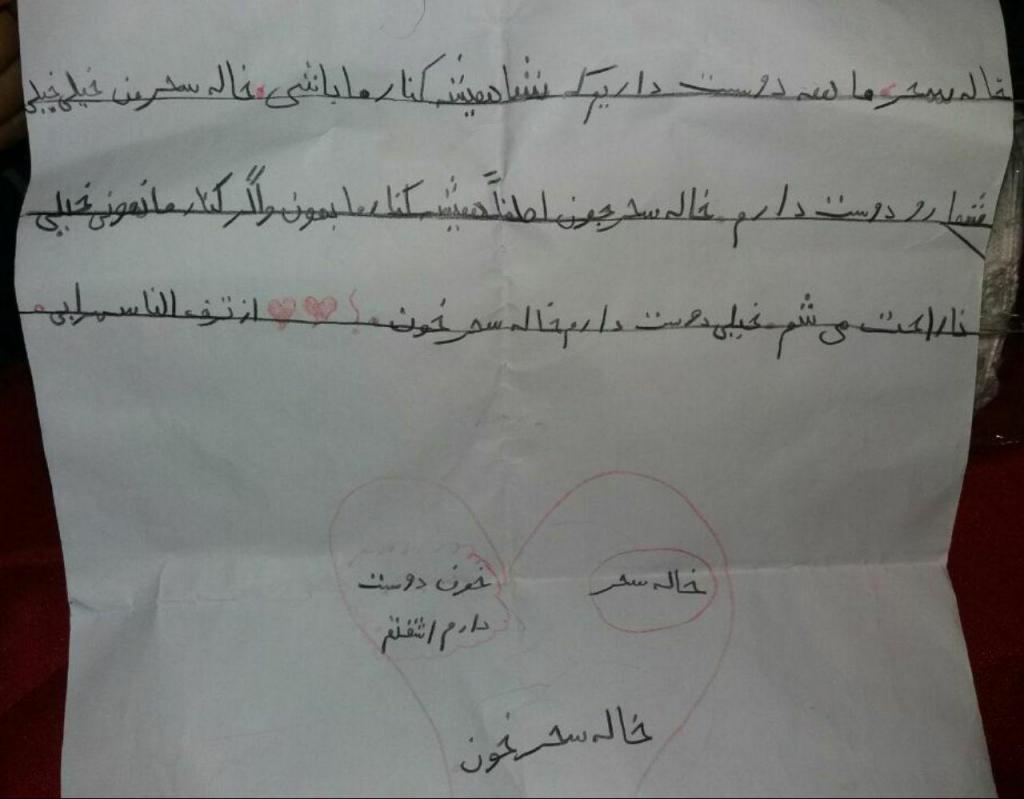 خاله سحر ما همه دوست داریم که شما همیشه کنار ما باشی. خاله سحر من خیلی خیلی
شما رو دوست دارم خاله سحر جون لطفاً همیشه کنار ما بمون و اگر کنار ما نمونی خیلی
ناراحت می شم. خیلی دوست دارم خاله سحر خون. از طرف الناس
خاله سحر
خون دوست
دارم
خاله سحر خون